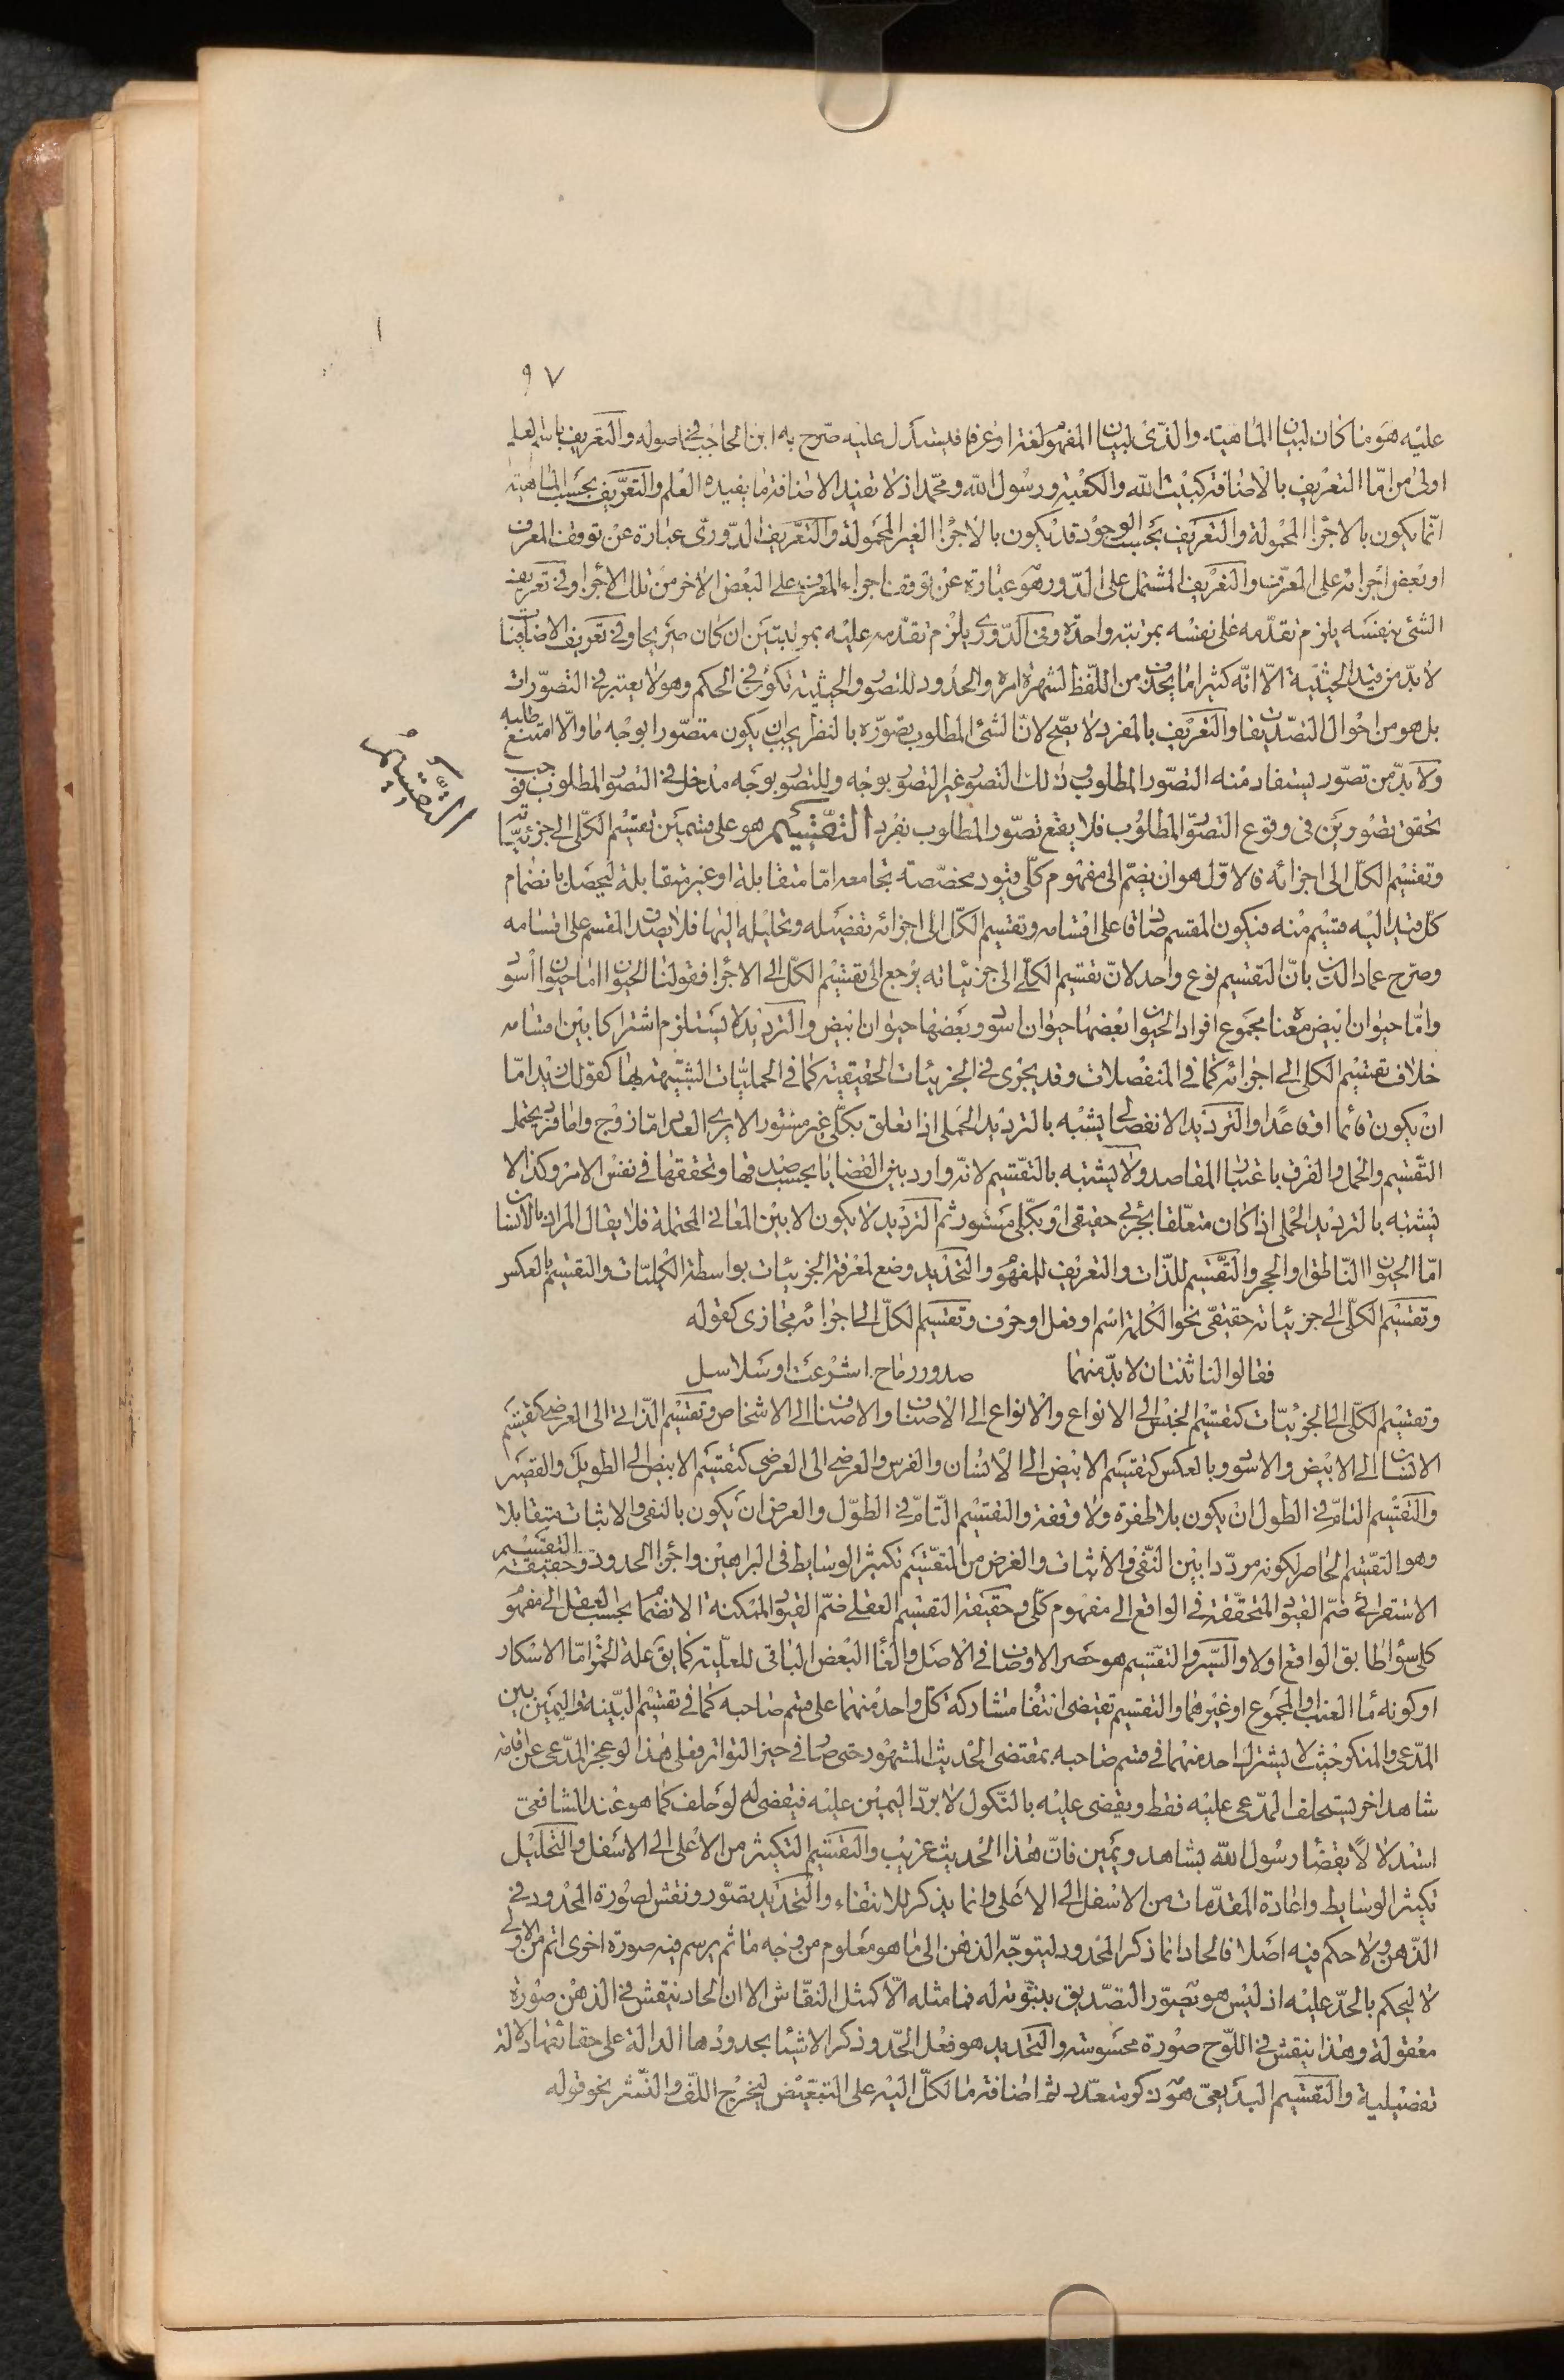 ٩٧
عليه هو ما كان لبيان الماهية والذى لبيان المفهوم لغة او عرفا فيستدل عليه صرح به ابن الحاجب فى اصوله والتعريف باسم العلم
اولى من التعريف بالاضافة كبيت الله والكعبة ورسول الله ومحمد اذ لا تفيد الاضافة ما يفيده العلم والتعريف بحسب الماهية
انما يكون بالاجزا المحمولة والتعريف بحسب الوجود قد يكون بالاجزا الغير المحمولة والتعريف الدورى عبارة عن توقف المعرف
او بعض اجزائه على المعرف والتعريف المشتمل على الدور هو عبارة عن توقف اجزاء المعرف على البعض الاخر من تلك الاجزا وفى تعريف
الشئ بنفسه يلزم تقدمه على نفسه بمرتبة واحدة وفى الدورى يلزم تقدمه عليه بمرتبتين ان كان صريحا وفى تعريف الاضافيات
لا بد من قيد الحيثية الا انه كثيرا ما يحذف من اللفظ لشهرة امره والحدود للتصور والحيثية تكون فى الحكم وهو لا يعتبر فى التصورات
بل هو من احوال التصديقات والتعريف بالمفرد لا يصح لان الشئ المطلوب تصوره بالنظر يجب ان يكون متصورا بوجه ما والا امتنع طلبه
ولا بد من تصور يستفاد منه التصور المطلوب وذلك التصور غير التصور بوجه وللتصور بوجه مدخل فى التصور المطلوب فوجب
تحقق تصورين فى وقوع التصور المطلوب فلا يقع تصور المطلوب بفرد التقسيم هو على قسمين تقسيم الكلى الى جزئياته
التقسيم
وتقسيم الكل الى اجزائه فالاول هو ان يضم الى مفهوم كلى قيود مخصصة تجامعه اما متقابلة او غير متقابلة ليحصل بانضمام
كل قيد اليه قسيم منه فيكون المقسم صادقا على اقسامه وتقسيم الكل الى اجزائه تفصيله وتحليله اليها فلا يصدق المقسم على اقسامه
وصرح عماد الدين بان التقسيم نوع واحد لان تقسيم الكلى الى جزئياته يرجع الى تقسيم الكل الى الاجزا فقولنا الحيوان اما حيوان اسود
واما حيوان ابيض معناه مجموع افراد الحيوان بعضها حيوان اسود وبعضها حيوان ابيض والترديد لا يستلزم اشتراكا بين اقسامه
خلاف تقسيم الكلى الى اجزائه كما فى المنفصلات وقد يجرى فى الجزئيات الحقيقية كما فى الحمليات الشبيهة بها كقولك زيد اما
ان يكون قائما او قاعدا والترديد الانفصالى يشبه بالترديد الحملى اذا تعلق بكلى غير مسور الا يرى العدد اما زوج واما فرد يحتمل
التقسيم والحمل والفرق باعتبار المقاصد ولا يشتبه بالتقسيم لانه وارد بين القضايا بحسب صدقها وتحققها فى نفس الامر وكذا لا
يشتبه بالترديد الحملى اذا كان متعلقا بجزئى حقيقى او بكلى مسور ثم الترديد لا يكون الا بين المعانى المحتملة فلا يقال المراد بالانسان
اما الحيوان الناطق او الحجر والتقسيم للذات والتعريف للمفهوم والتحديد وضع لمعرفة الجزئيات بواسطة الكليات والتقسيم بالعكس
وتقسيم الكلى الى جزئياته حقيقى نحو الكلمة اسم او فعل او حرف وتقسيم الكل الى اجزائه مجازى كقوله
فقالوا لنا ثنتان لا بد منهما صدور رماح اشرعت او سلاسل
وتقسيم الكلى الى الجزئيات كتقسيم الجنس الى الانواع والانواع الى الاصناف والاصناف الى الاشخاص وتقسيم الذاتى الى العرضى كتقسيم
الانسان الى الابيض والاسود وبالعكس كتقسيم الابيض الى الانسان والفرس والعرضى الى العرضى كتقسيم الابيض الى الطويل والقصير
والتقسيم التام فى الطول ان يكون بلا طفرة ولا وقفة والتقسيم التام فى الطول والعرض ان يكون بالنفى والاثبات متقابلا
وهو التقسيم الحاصر لكونه مرددا بين النفى والاثبات والغرض من التقسيم تكثير الوسايط فى البراهين واجزا الحدود وحقيقة التقسيم
الاستقرائى ضم القيود المتحققة فى الواقع الى مفهوم كلى وحقيقة التقسيم العقلى ضم القيود الممكنة الانضمام بحسب العقل الى مفهوم
كلى سواء طابق الواقع او لا والسبر والتقسيم هو حصر الاوصاف فى الاصل والغاء البعض الباقى للعلية كما يق علة الخمر اما الاسكار
او كونه ماء العنب او المجموع او غيرهما والتقسيم تقتضى انتفا مشاركة كل واحد منهما على قسم صاحبه كما فى تقسيم البينة واليمين بين
المدعى والمنكر حيث لا يشترك احد منهما فى قسم صاحبه بمقتضى الحديث المشهور حتى صار فى حيز التواتر فعلى هذا لو عجز المدعى عن اقامة
شاهد اخر يستحلف المدعى عليه فقط ويقضى عليه بالنكول لا برد اليمين عليه فيقضى له لو حلف كما هو عند الشافعى
استدلالا بقضا رسول الله بشاهد ويمين فان هذا الحديث غريب والتقسيم التكثير من الاعلى الى الاسفل والتحليل
تكثير الوسايط واعادة المقدمات من الاسفل الى الاعلى وانما يذكر للانتفاء والتحديد تصور ونقش لصورة المحدود فى
الذهن ولا حكم فيه اصلا فالحاد انما ذكر المحدود ليتوجه الذهن الى ما هو معلوم من وجه ما ثم يرسم فيه صورة اخرى اتم من الاولى
لا ليحكم بالحد عليه اذ ليس هو بصور التصديق بثبوته له فما مثله الا كمثل النقاش الا ان الحاد ينقش فى الذهن صورة
معقولة وهذا ينقش فى اللوح صورة محسوسة والتحديد هو فعل الحد وذكر الاشيا بحدودها الدالة على حقائقها دلالة
تفصيلية والتقسيم البديعى هو ذكر متعدد ثم اضافة ما لكل اليه على التبعيض ليخرج اللف والنشر نحو قوله